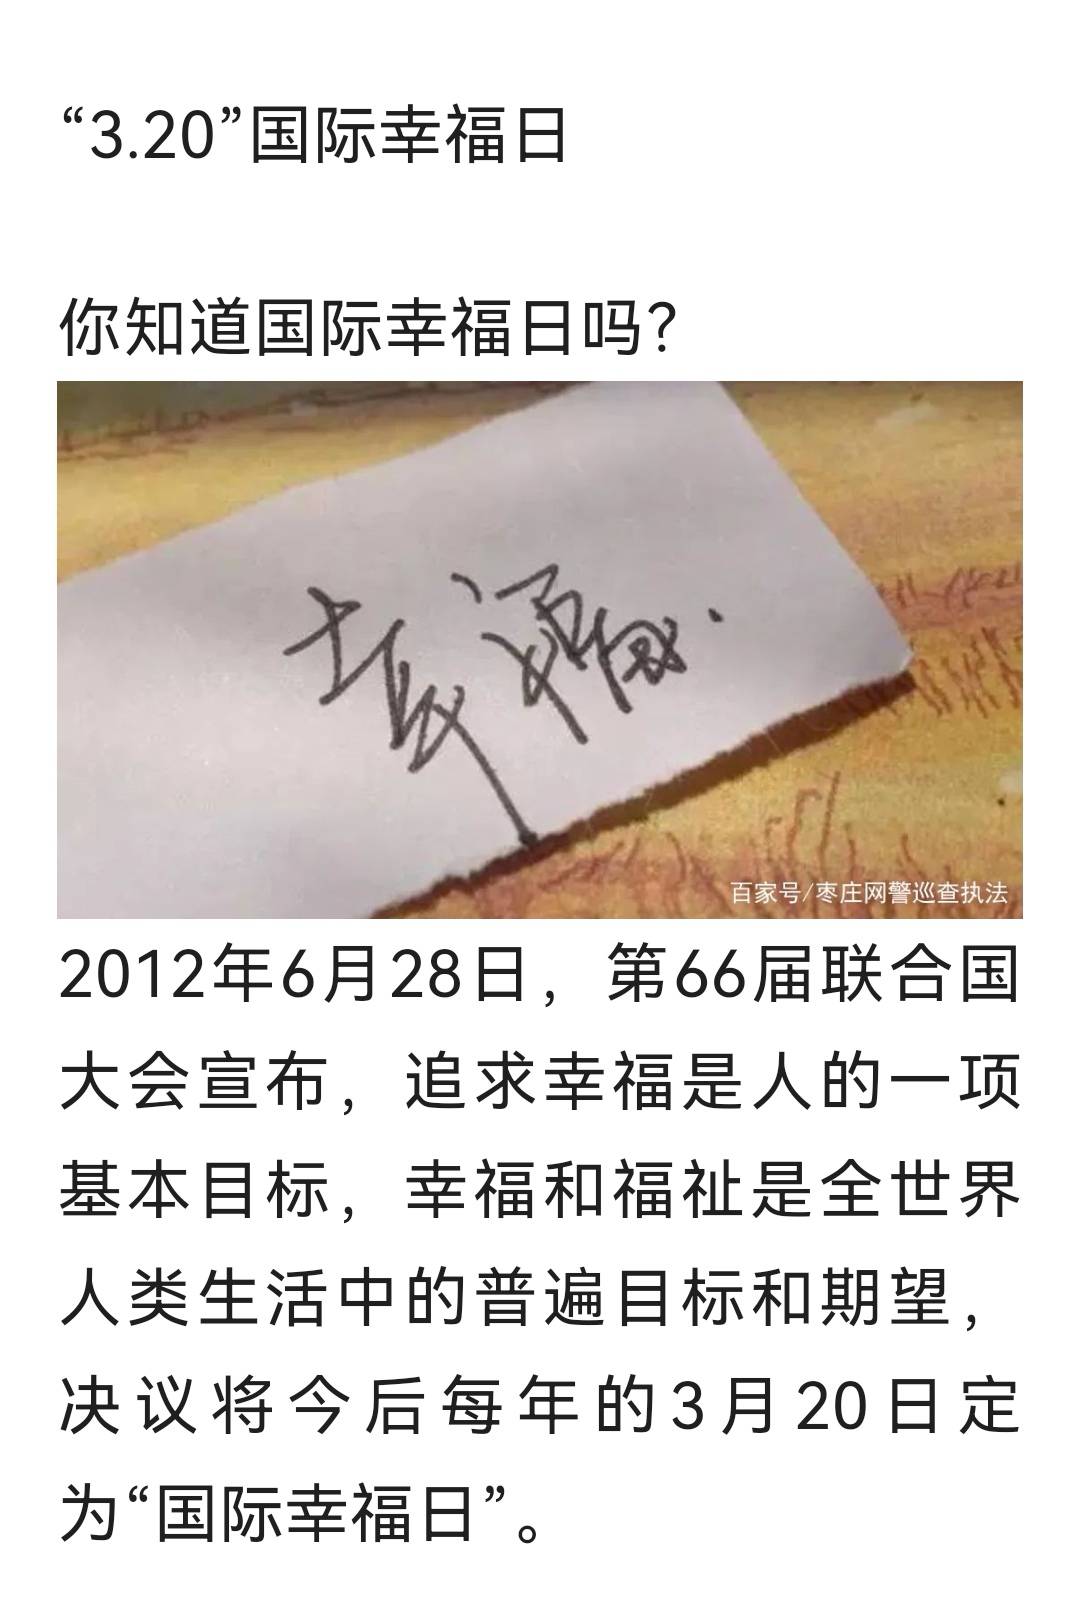 “3.20”国际幸福日
你知道国际幸福日吗？
幸福.
百家号/枣庄网警巡查执法
2012年6月28日，第66届联合国
大会宣布，追求幸福是人的一项
基本目标，幸福和福祉是全世界
人类生活中的普遍目标和期望，
决议将今后每年的3月20日定
为“国际幸福日”。